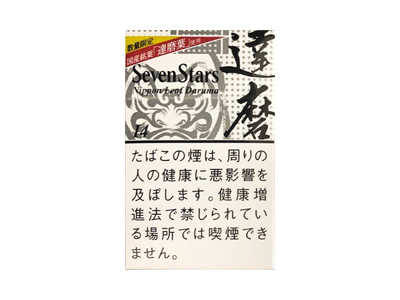 数量限定
国産銘葉「達磨葉」使用
SevenStars
Nippon Leaf Daruma
達磨
14
たばこの煙は、周りの
人の健康に悪影響を
及ぼします。健康増
進法で禁じられてい
る場所では喫煙でき
ません。